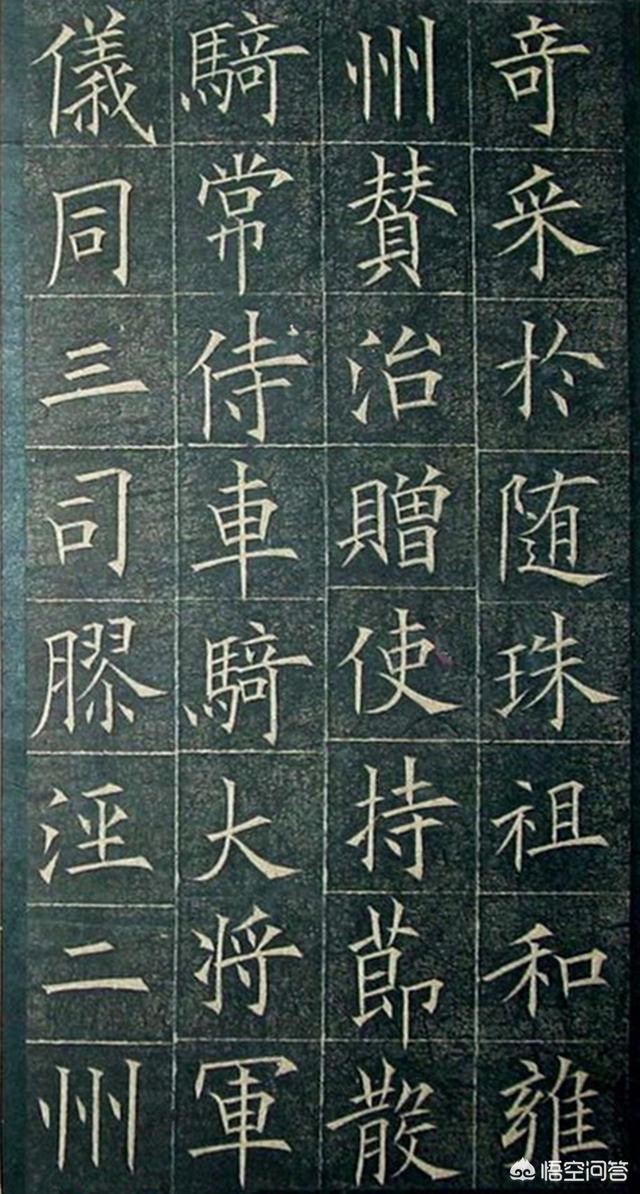 奇采於隨珠祖和雍
州贊治贈使持節散
騎常侍車騎大將軍
儀同三司膠涇二州
悟空问答